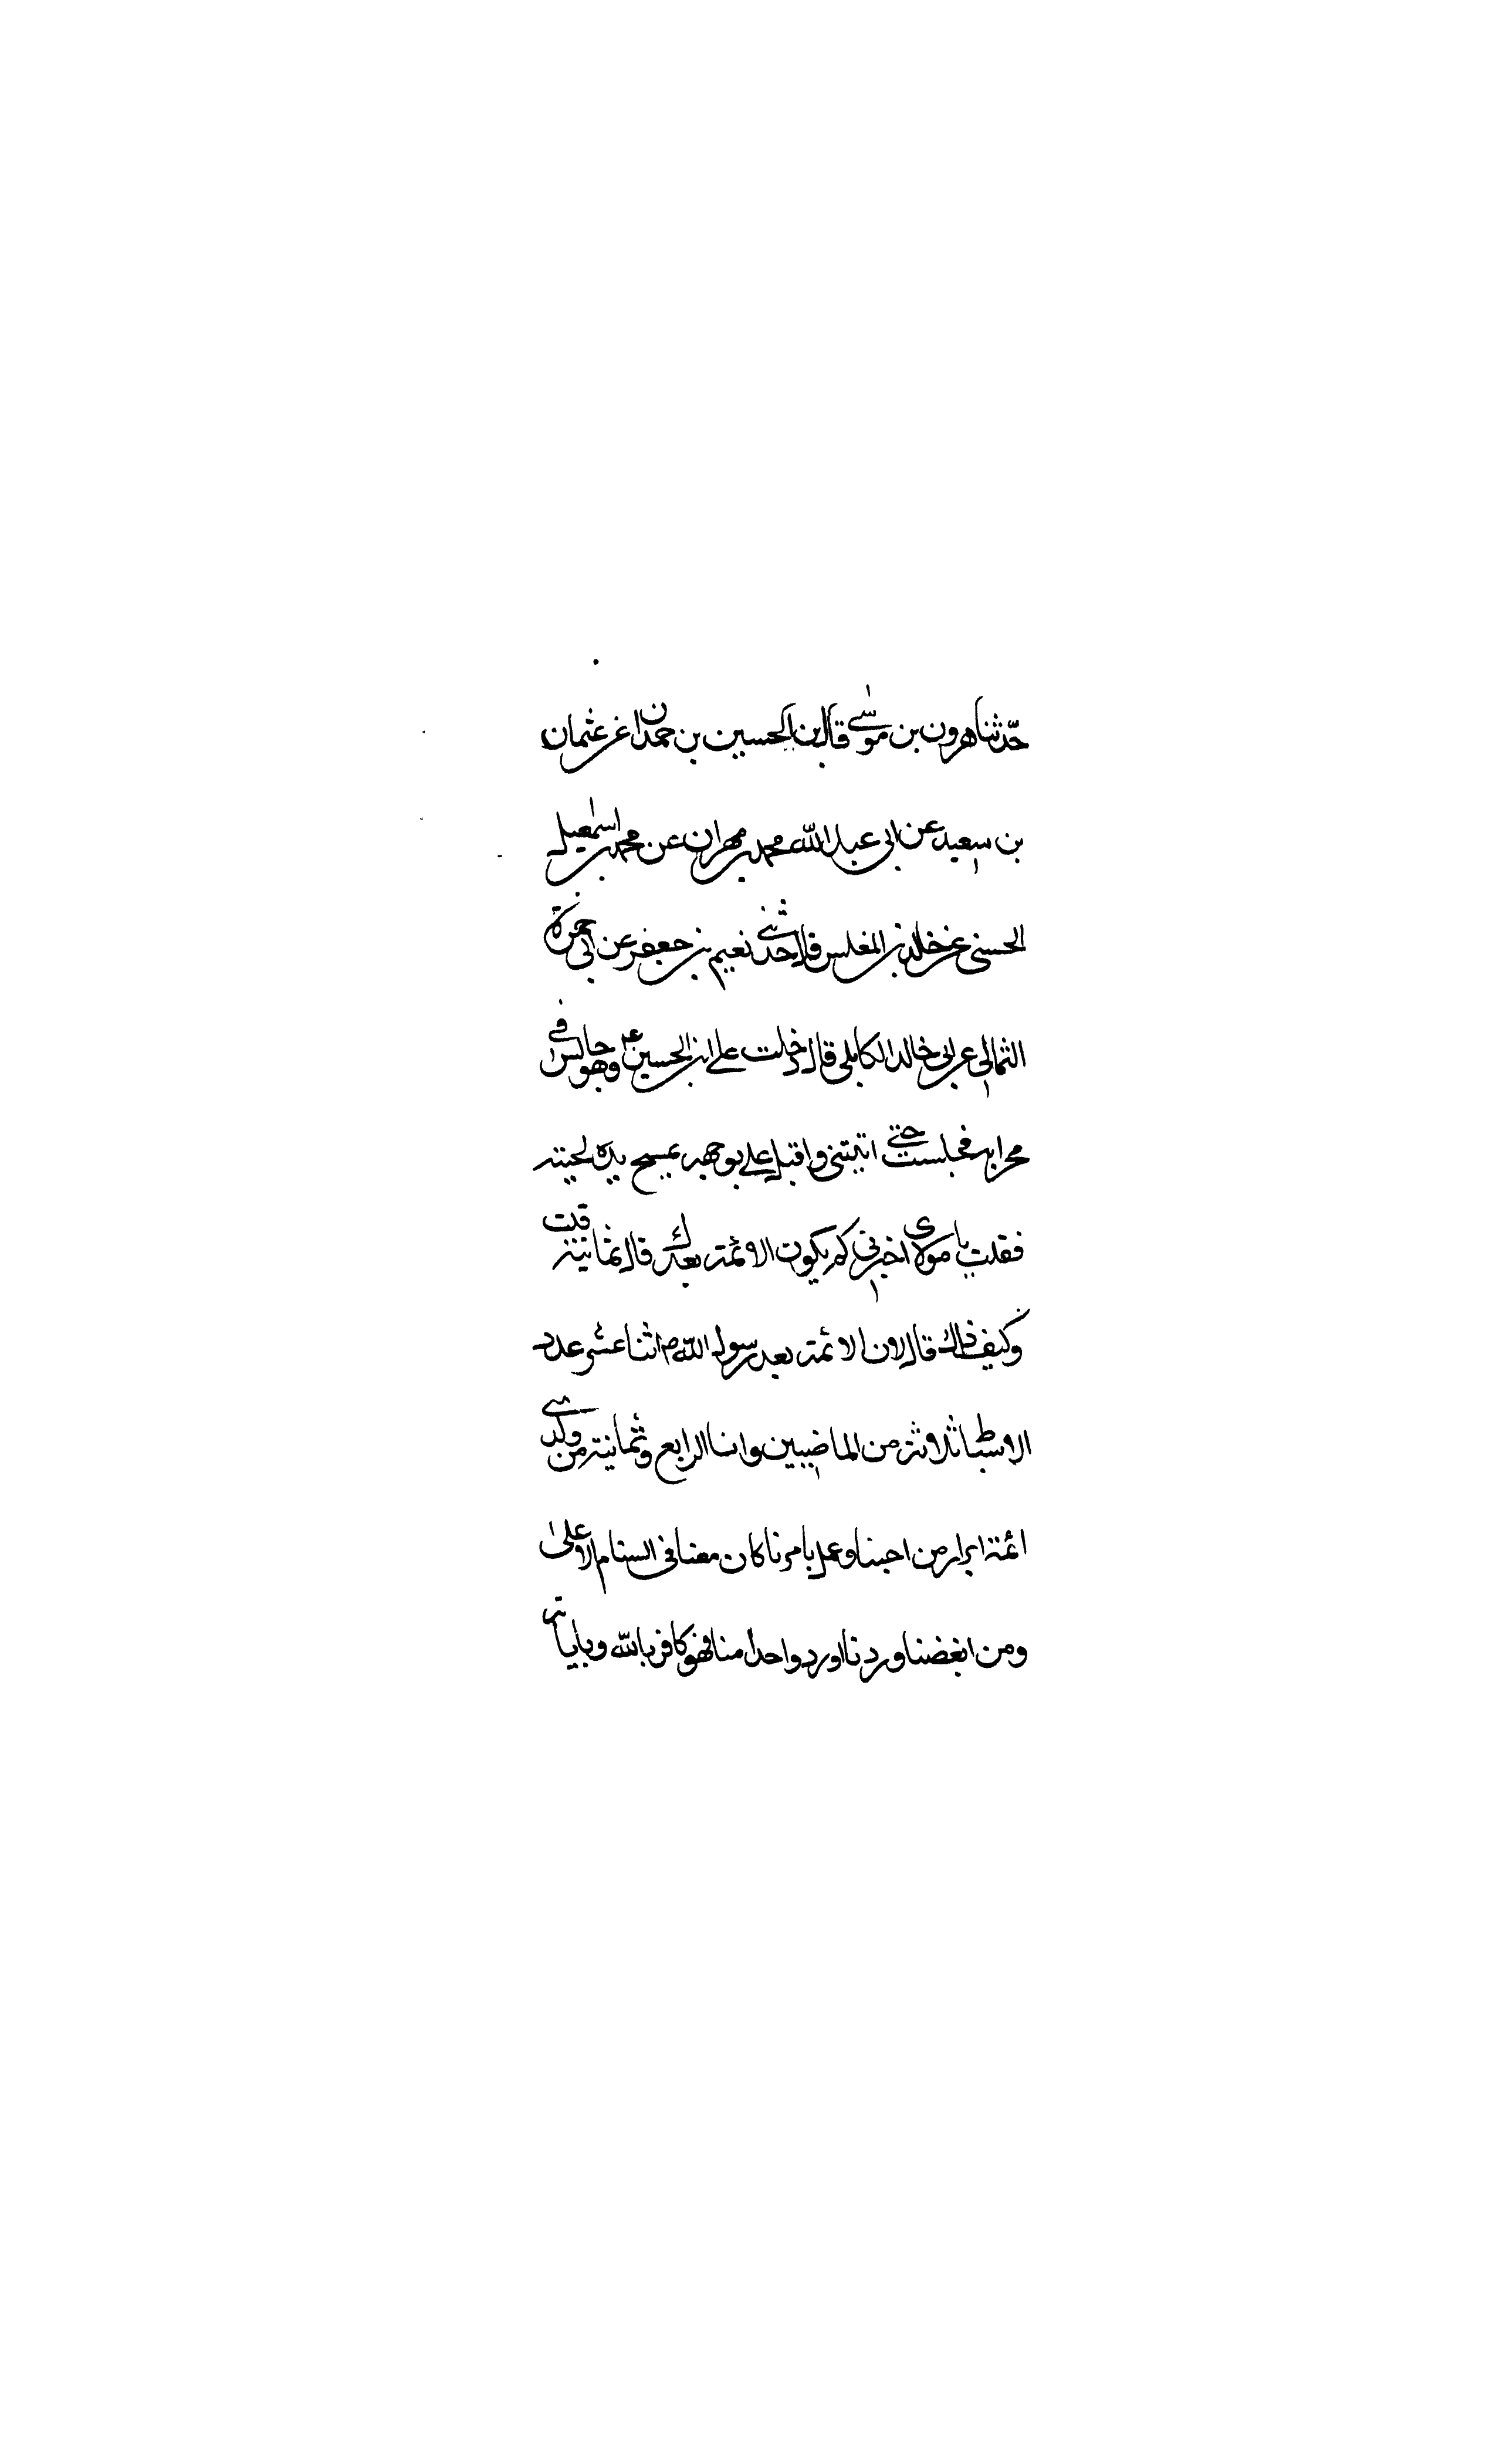 حدّثنا هرون بن موسى قال بن الحسين بن حمدان عن عثمان
بن سعيد عن ابى عبد الله محمد بن مهران عن محمد بن اسمعيل
الحسنى عن خالد بن المغلس قال حدثنى نعيم بن جعفر عن ابى حمزة
الثمالى عن ابى خالد الكابلى قال دخلت على ابن الحسين ع وهو جالس فى
محرابه فجلست حتى اثنى واقبل على بوجهه يمسح يده لحيته
فقلت يا مولاى اخبرنى كم يكون الائمة بعدك قال ثمانية قلت
وكيف ذاك قال لان الائمة بعد رسول الله ص اثنا عشر عدد
الاسباط ثلاثة من الماضيين وانا الرابع وثمانية من ولدى
ائمة ابرار من احبنا وعمل بامرنا كان معنا فى السنام الاعلى
ومن ابغضنا وردنا اورد واحدا منا فهو كافر بالله وباياته